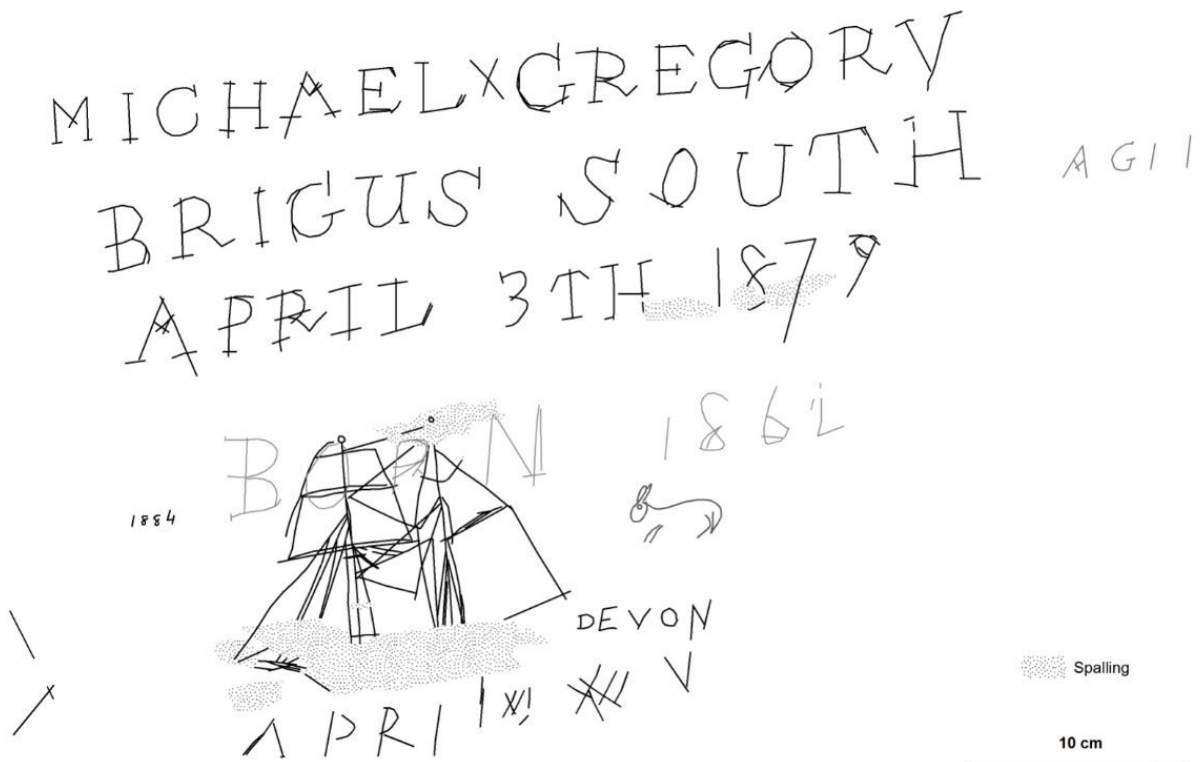 MICHAEL X GREGORY
BRIGUS SOUTH
AGII
APRIL 3TH 1879
BORN 1862
1884
DEVON
V
APRI
Spalling
10 cm